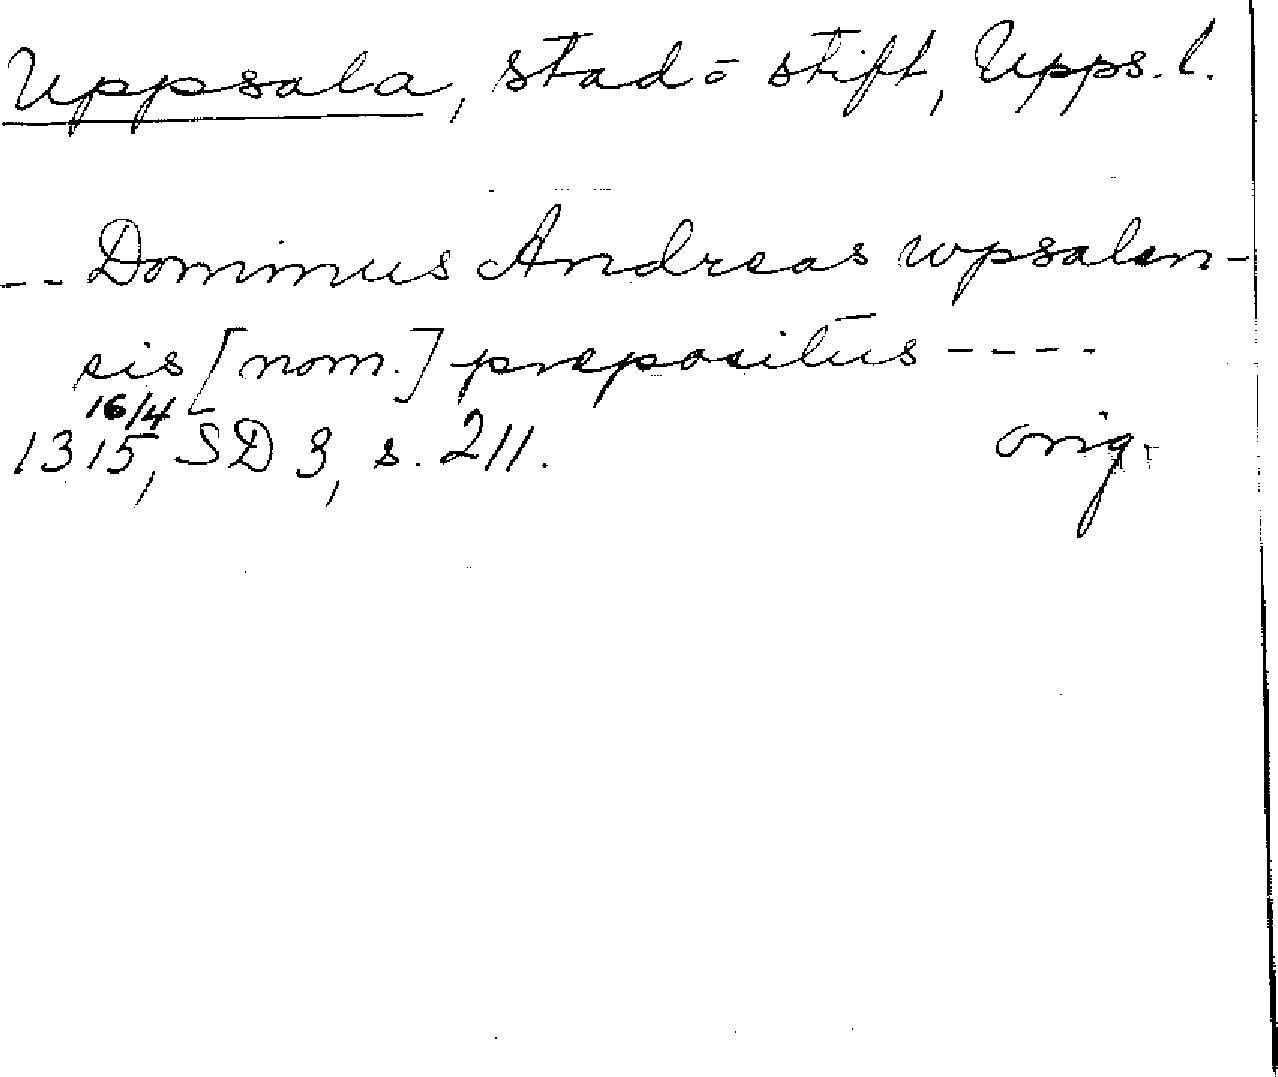 Uppsala, stad o stift, Upps. l.
-- Dominus Andreas wpsalen-
sis [nom.] prepositus ----
16/4
1315, SD 3, s. 211. orig.